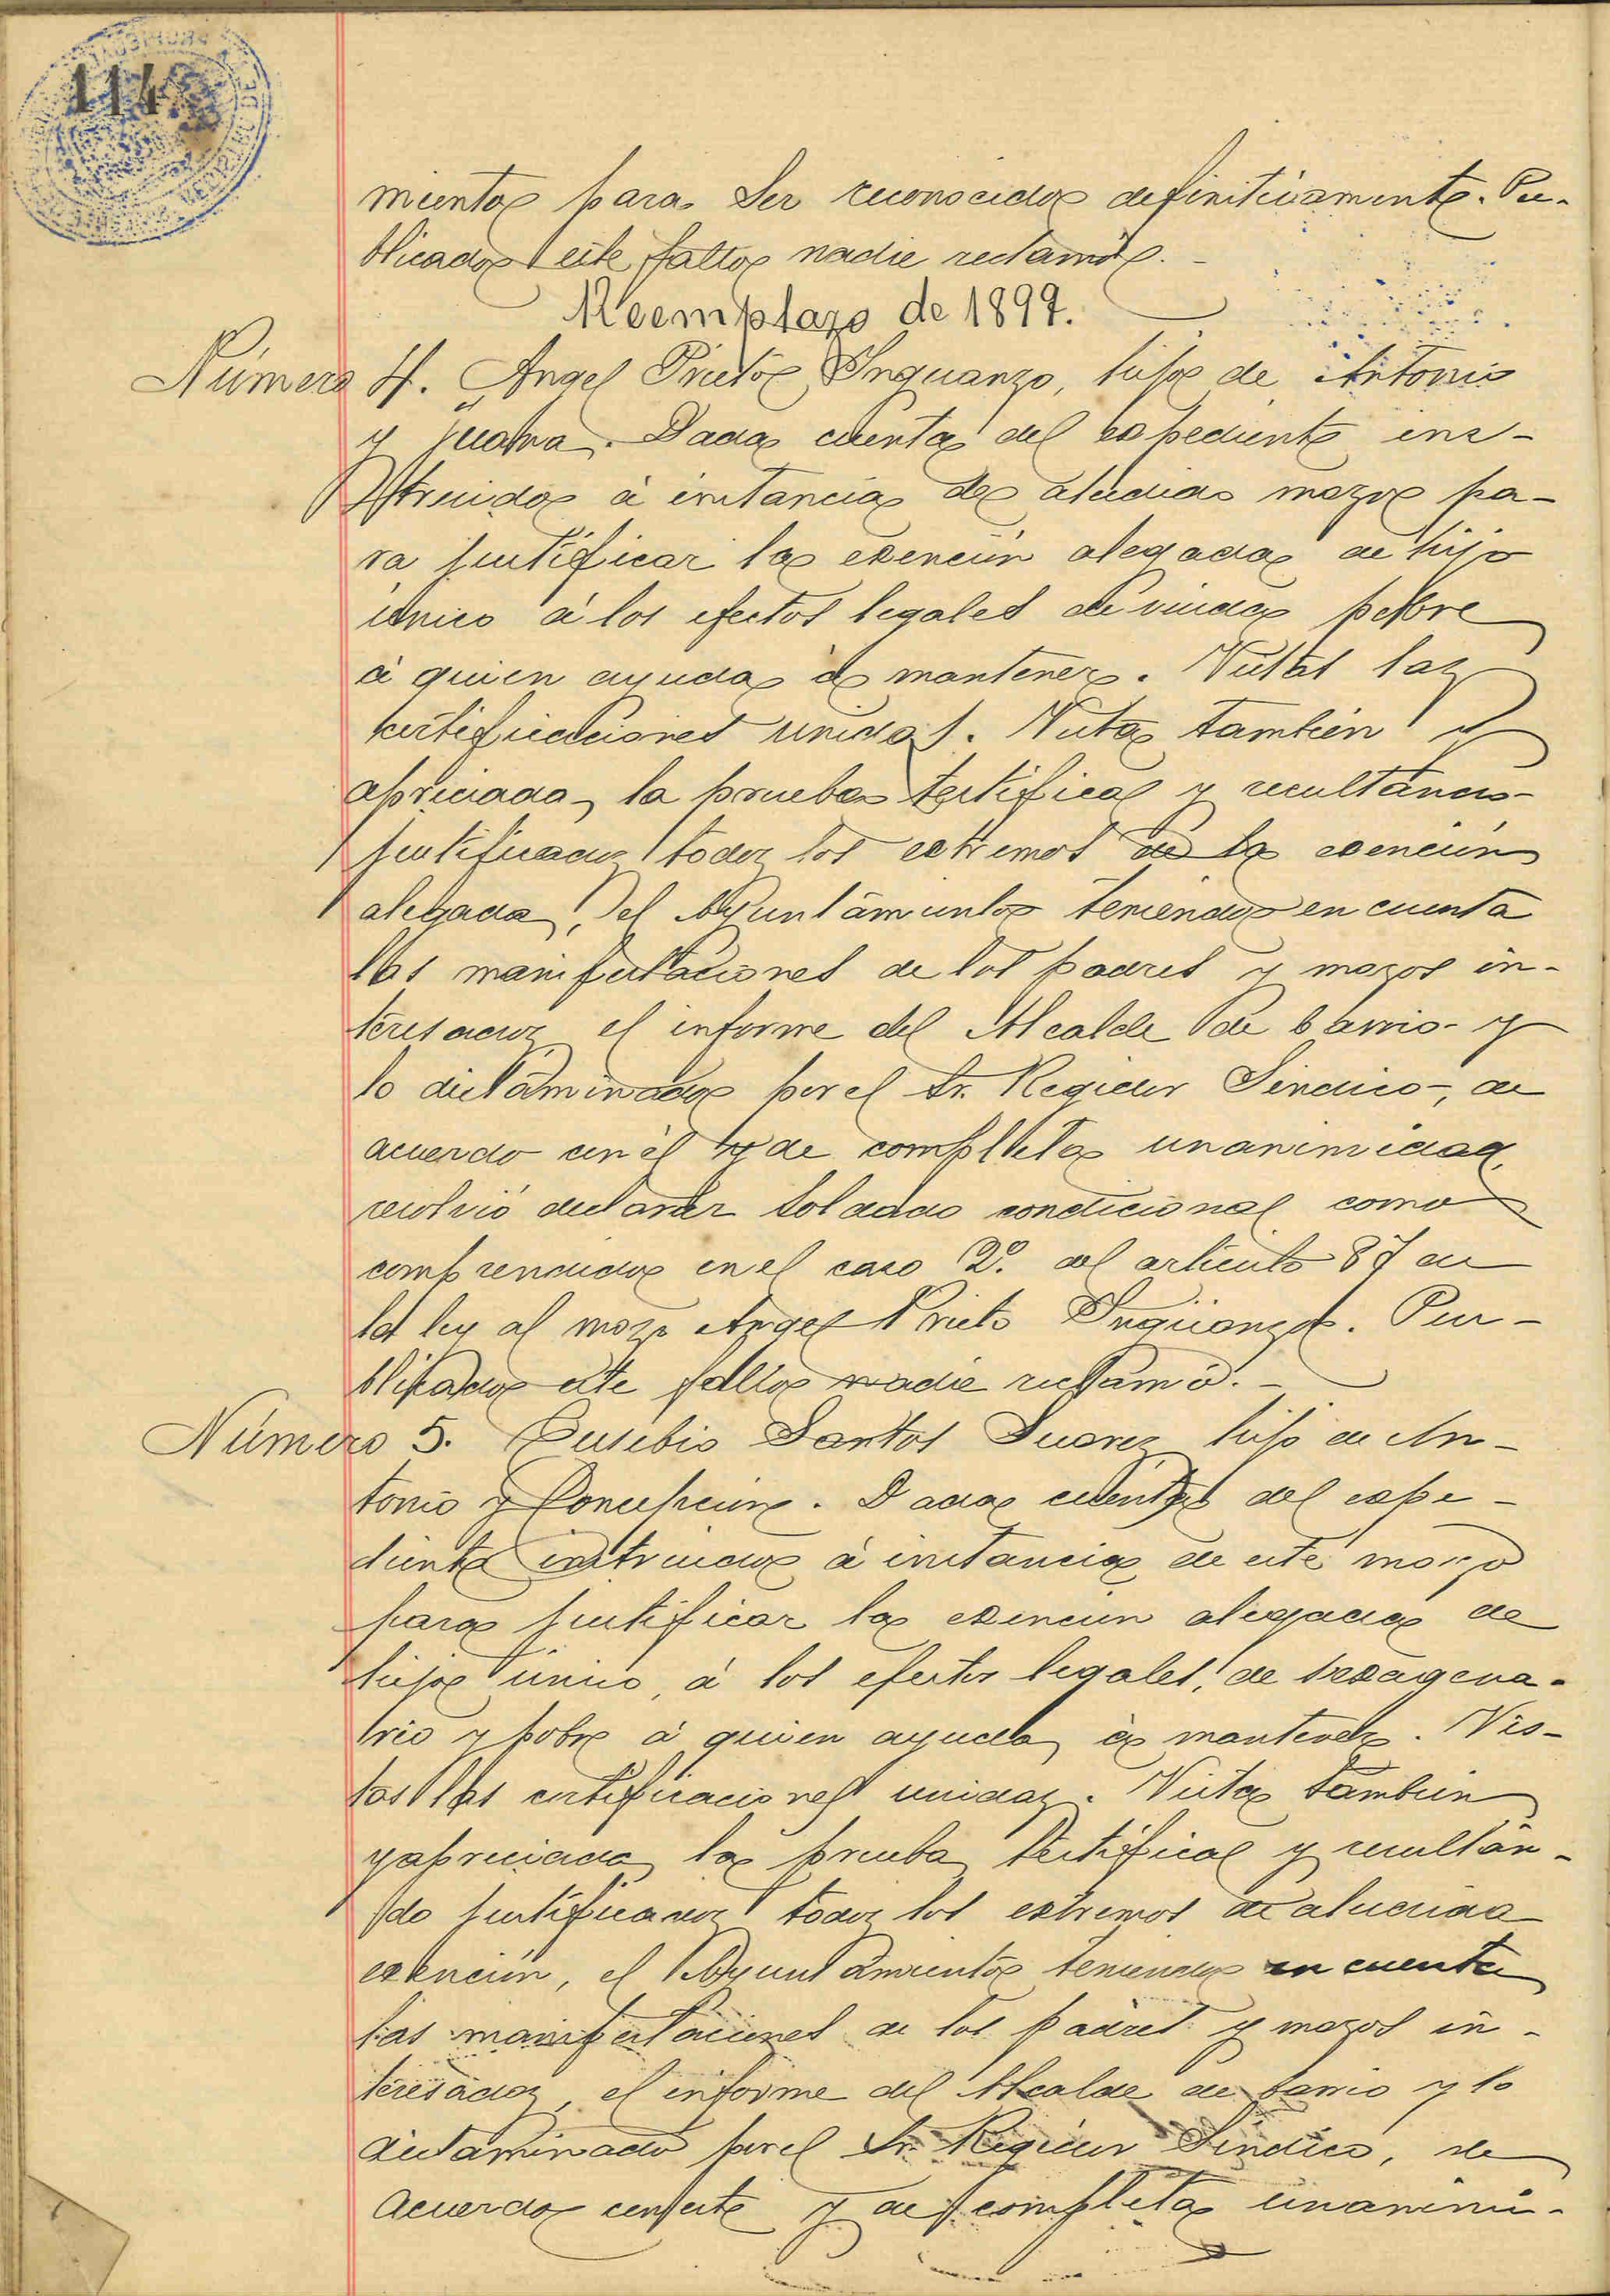 114
miento para ser reconocido definitivamente. Pu-
blicado este fallo nadie reclamó.
Reemplazo de 1899.
Número 4. Angel Prieto Inguanzo, hijo de Antonio
y Juana. Dada cuenta del expediente ins-
truido á instancia de aludido mozo pa-
ra justificar la exención alegada de hijo
único á los efectos legales de viuda pobre
á quien ayuda á mantener. Vistas las
certificaciones unidas. Vista también y
apreciada la prueba testifical y resultando
justificados todos los extremos de la exención
alegada, el Ayuntamiento teniendo en cuenta
las manifestaciones de los padres y mozos in-
teresados el informe del Alcalde de barrio y
lo dictaminado por el Sr. Regidor Síndico, de
acuerdo con él y de completa unanimidad,
resolvió declarar soldado condicional como
comprendido en el caso 2º. del artículo 87 de
la ley al mozo Angel Prieto Ingüanzo. Pu-
blicado este fallo nadie reclamó.
Número 5. Eusebio Santos Suarez hijo de An-
tonio y Concepción. Dada cuenta del expe-
diente instruido á instancia de este mozo
para justificar la exención alegada de
hijo único, á los efectos legales, de sexagena-
rio y pobre á quien ayuda á mantener. Vis-
tas las certificaciones unidas. Vista también
y apreciada la prueba testifical y resultan-
do justificados todos los extremos de aludida
exención, el Ayuntamiento teniendo en cuenta
las manifestaciones de los padres y mozos in-
teresados, el informe del Alcalde de barrio y lo
dictaminado por el Sr. Regidor Síndico, de
acuerdo con este y de completa unanimi-